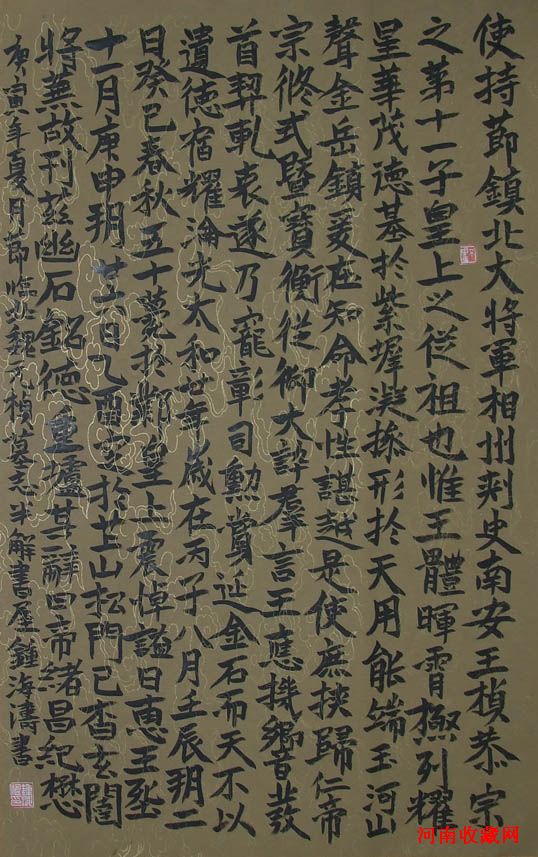 使持節鎮北大將軍相州刺史南安王楨恭宗
之第十一子皇上之從祖也惟王體暉霄極列耀
星華茂德基於紫墀凝操形於天用能端玉河山
聲金岳鎮爰在知命孝性諶越是使庶族歸仁帝
宗攸式暨寶衡從御大訊羣言王應機響發
首契乾衷遂乃寵彰司勳賞延金石而天不以
遺德宿耀淪光太和廿年歲在丙子八月壬辰朔二
日癸巳春秋五十薨於鄴皇上震悼謚曰惠王塟
十一月庚申朔廿六日乙酉窆於芒山松門已杳玄闥
將蕪故刊茲幽石銘德熏壚其辭曰帝緒昌紀懋
庚寅年夏月節臨北魏元楨墓志半解書屋鍾海濤書
河南收藏网